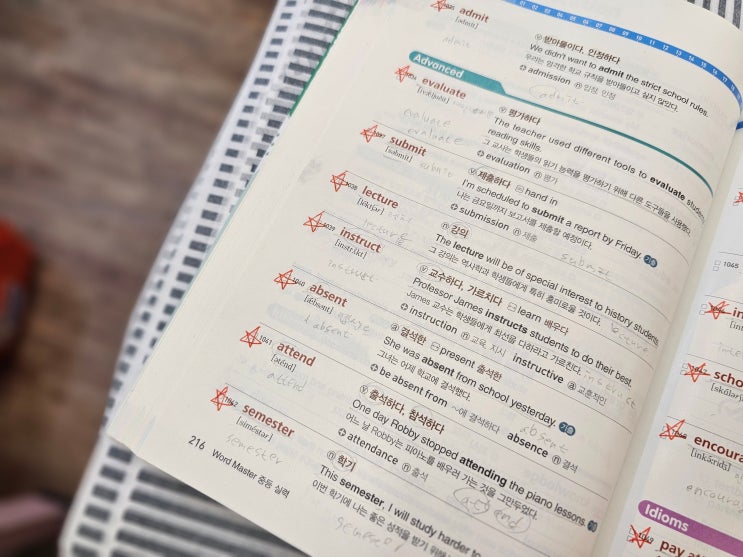 admit
[ədmít]
admit
ⓥ 받아들이다, 인정하다
We didn't want to admit the strict school rules.
우리는 엄격한 학교 규칙을 받아들이고 싶지 않았다.
✪ admission ⓝ 입장, 인정
admit
Advanced
evaluate
evaluate
evaluate
ⓥ 평가하다
The teacher used different tools to evaluate students'
reading skills.
그 교사는 학생들의 읽기 능력을 평가하기 위해 다른 도구들을 사용했다.
✪ evaluation ⓝ 평가
1037
submit
[səbmít]
submit
ⓥ 제출하다 ⊜ hand in
I'm scheduled to submit a report by Friday. 기출
나는 금요일까지 보고서를 제출할 예정이다.
✪ submission ⓝ 제출
submit
1038
lecture
[léktʃər]
lecture
ⓝ 강의
The lecture will be of special interest to history students.
그 강의는 역사학과 학생들에게 특히 흥미로울 것이다.
lecture
1039
instruct
[instrʌ́kt]
instruct
ⓥ 교수하다, 가르치다 ⊟ learn 배우다
Professor James instructs students to do their best.
James 교수는 학생들에게 최선을 다하라고 가르친다.
✪ instruction ⓝ 교육, 지시 instructive ⓐ 교훈적인
instruct
1040
absent
[ǽbsənt]
absent
ⓐ 결석한 ⊟ present 출석한
She was absent from school yesterday. 기출
그녀는 어제 학교에 결석했다.
✪ be absent from ~에 결석하다 absence ⓝ 결석
absent
1041
attend
[əténd]
attend
ⓥ 출석하다, 참석하다
One day Robby stopped attending the piano lessons.
어느 날 Robby는 피아노를 배우러 가는 것을 그만두었다.
✪ attendance ⓝ 출석
attend
1042
semester
[siméstər]
semester
ⓝ 학기
This semester, I will study harder to
이번 학기에 나는 좋은 성적을 받기 위해
semester
216 Word Master 중등 실력
1045
in
scho
[skάlər
encoura
[inkə́ːridʒ]
encoura
Idioms
pay att